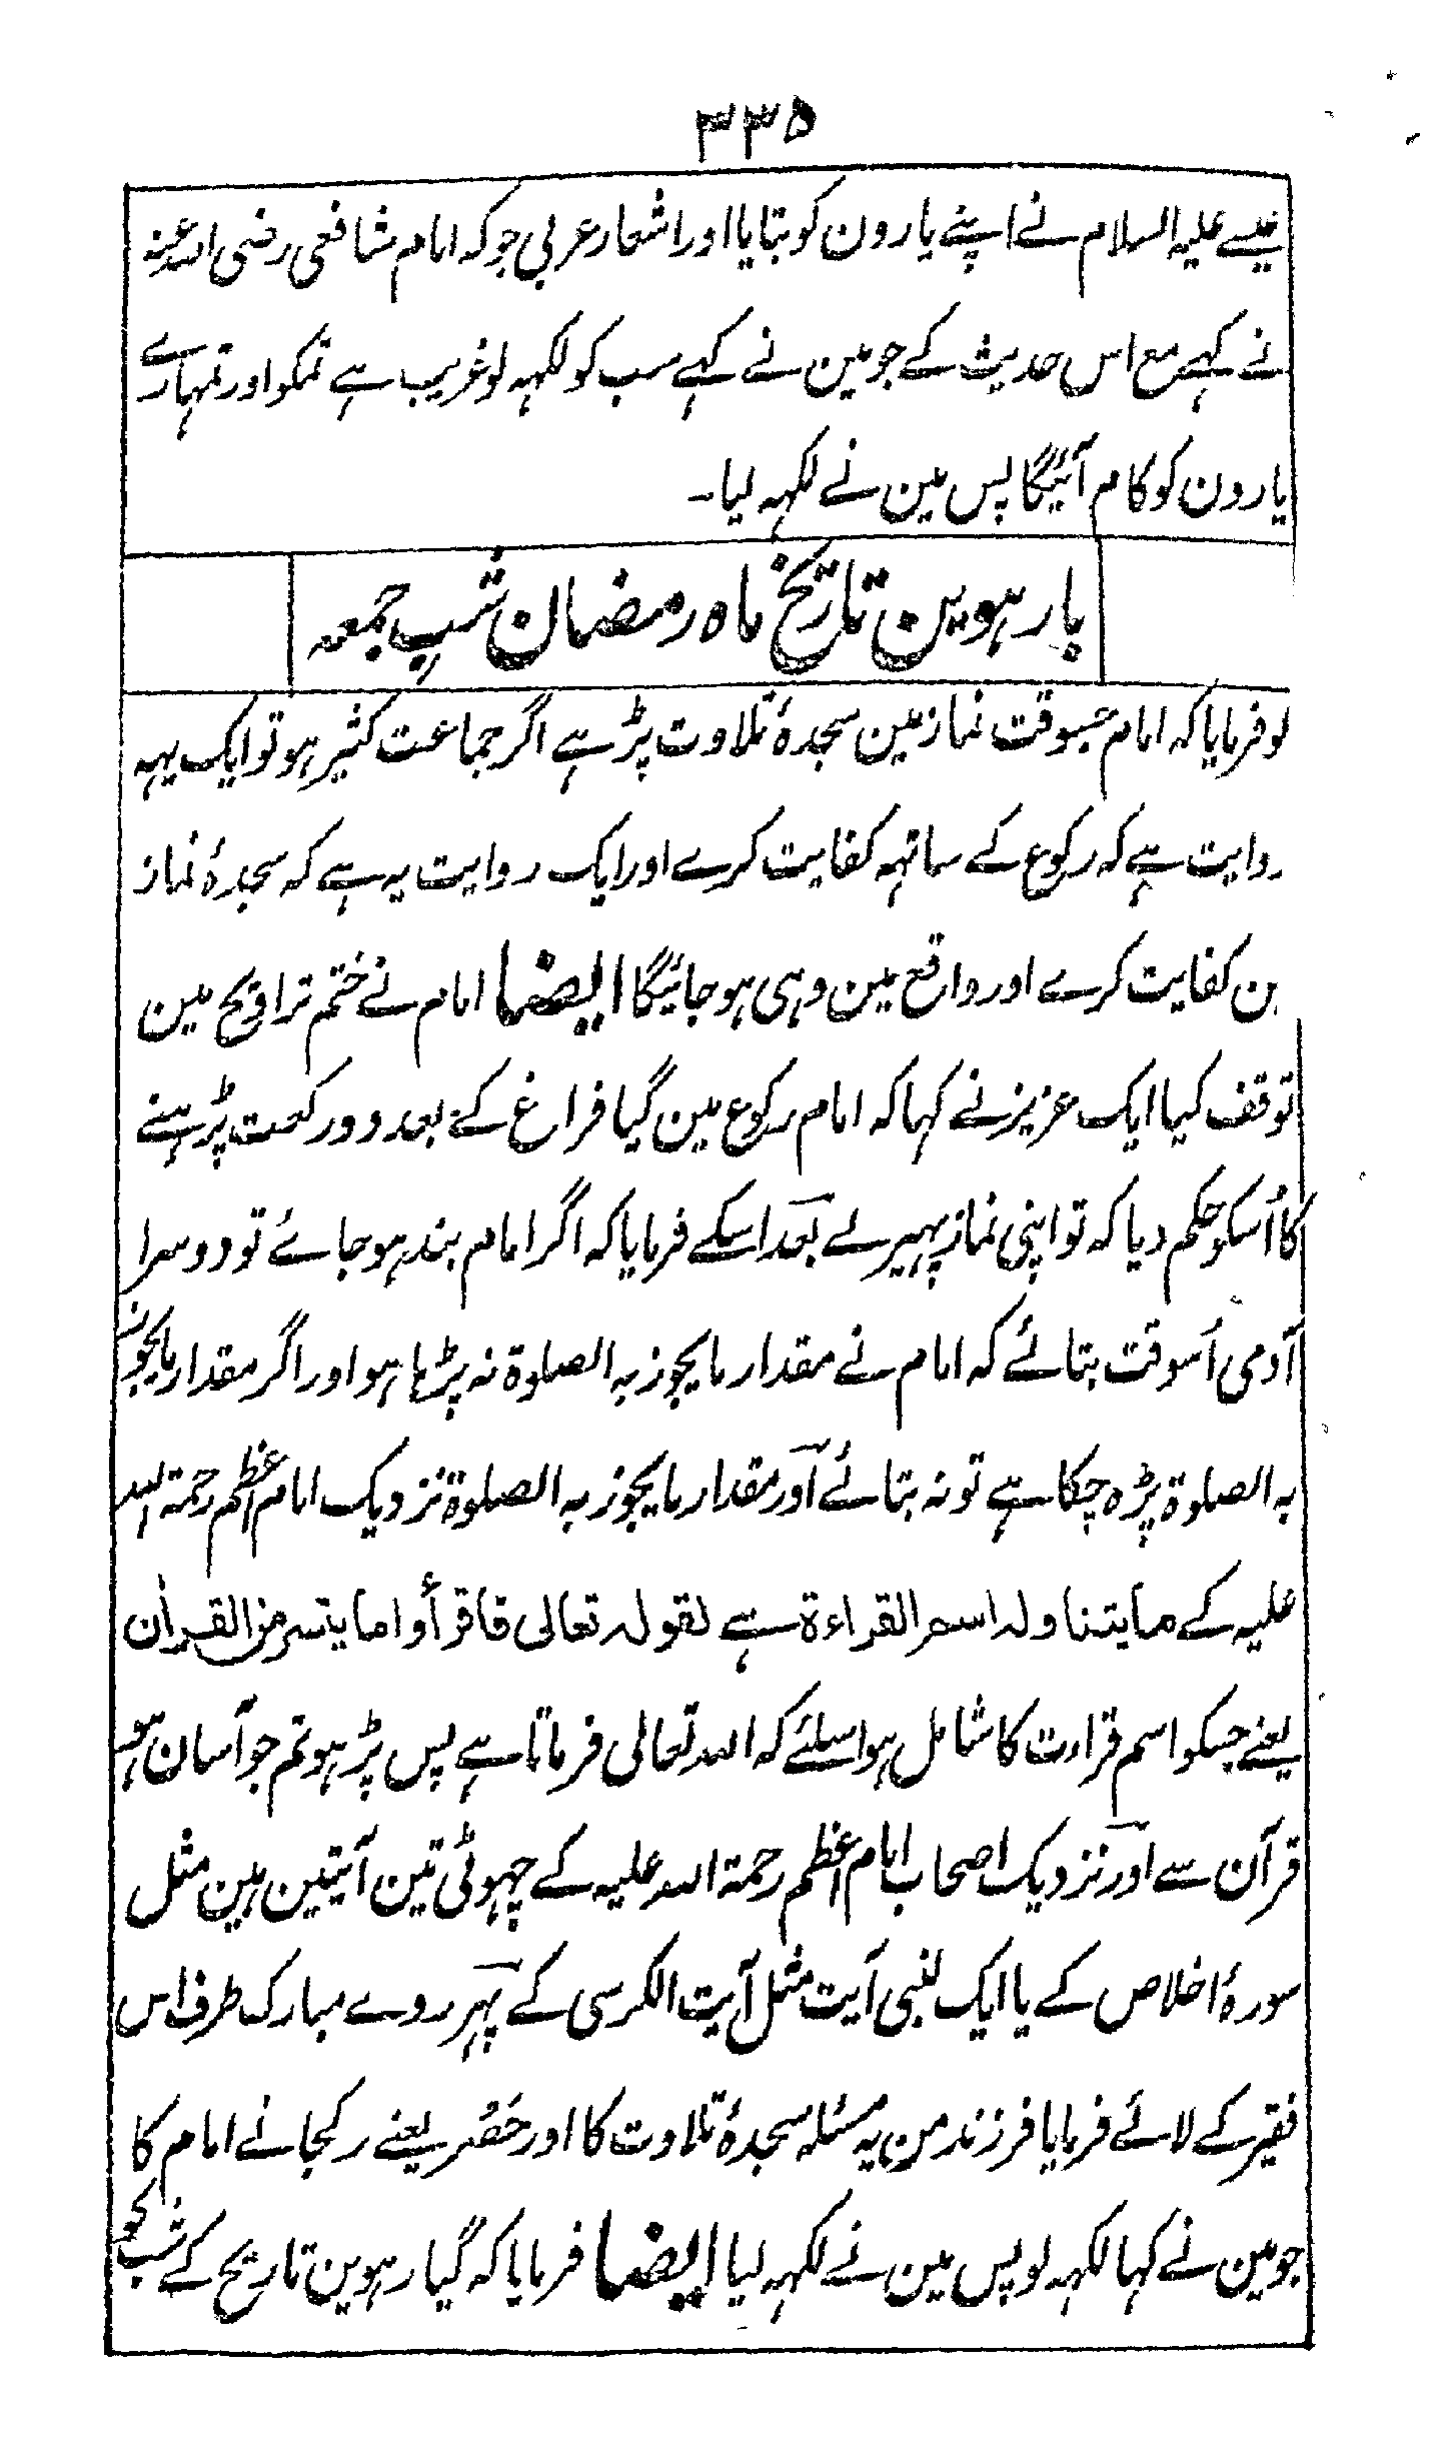 ۳۳۵
عیسے علیہ السلام نے اپنے یارون کو بتایا اور اشعار عربی جو کہ امام شافعی رضی اللہ عنہ
نے کہے مع اس حدیث کے جو مین نے کہے سب کو لکہہ لو غریب ہے تمکو اور تمہارے
یارون کو کام آئیگا پس مین نے لکہہ لیا۔
بارہوین تاریخ ماہ رمضان شب جمعہ
لو فرمایا کہ امام جسوقت نماز مین سجدۂ تلاوت پڑہے اگر جماعت کثیر ہو تو ایک یہہ
روایت ہے کہ رکوع کے ساتہہ کفایت کرے اور ایک روایت یہ ہے کہ سجدۂ نماز
ین کفایت کرے اور واقع مین وہی ہو جائیگا ایضا امام نے ختم تراویح مین
توقف کیا ایک عزیز نے کہا کہ امام رکوع مین گیا فراغ کے بعد دو رکعت پڑہنے
کا اُسکو حکم دیا کہ تو اپنی نماز پہیر لے بعد اسکے فرمایا کہ اگر امام بند ہو جائے تو دوسرا
آدمی اُسوقت بتائے کہ امام نے مقدار ما یجوز بہ الصلوۃ نہ پڑہا ہو اور اگر مقدار ما یجوز
بہ الصلوۃ پڑہ چکا ہے تو نہ بتائے اور مقدار ما یجوز بہ الصلوۃ نزدیک امام اعظم رحمۃ اللہ
علیہ کے ما یتناولہ اسم القراءۃ ہے لقولہ تعالی فاقرأوا ما یتسر من القراٰن
یعنے جسکو اسم قراءت کا شامل ہو اسلئے کہ اللہ تعالی فرماتا ہے پس پڑہو تم جو آسان ہو
قرآن سے اور نزدیک اصحاب امام اعظم رحمۃ اللہ علیہ کے چہوٹی تین آیتین ہین مثل
سورۂ اخلاص کے یا ایک لنبی آیت مثل آیت الکرسی کے پہر روے مبارک طرف اس
فقیر کے لائے فرمایا فرزند من یہ مسئلہ سجدۂ تلاوت کا اور حَصْر یعنے رکجانے امام کا
جو مین نے کہا لکہہ لو پس مین نے لکہہ لیا ایضا فرمایا کہ گیارہوین تاریخ کے شب کو